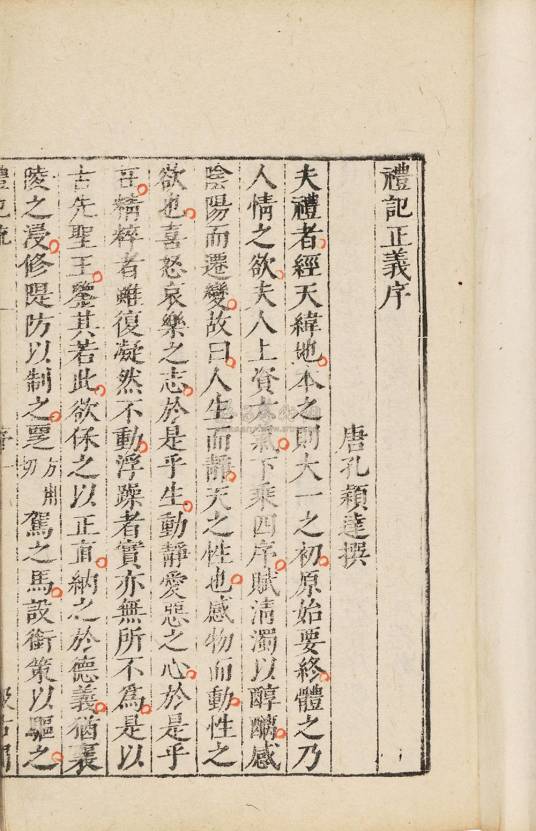 禮記正義序
唐孔穎達撰
夫禮者經天緯地本之則大一之初原始要終體之乃
人情之欲夫人上資六氣下乘四序賦清濁以醇醨感
陰陽而遷變故曰人生而靜天之性也感物而動性之
欲也喜怒哀樂之志於是乎生動靜愛惡之心於是乎
在精粹者雖復凝然不動浮躁者實亦無所不爲是以
古先聖王鑒其若此欲保之以正直納之於德義猶襄
陵之浸修隄防以制之覂方用切駕之馬設銜策以驅之